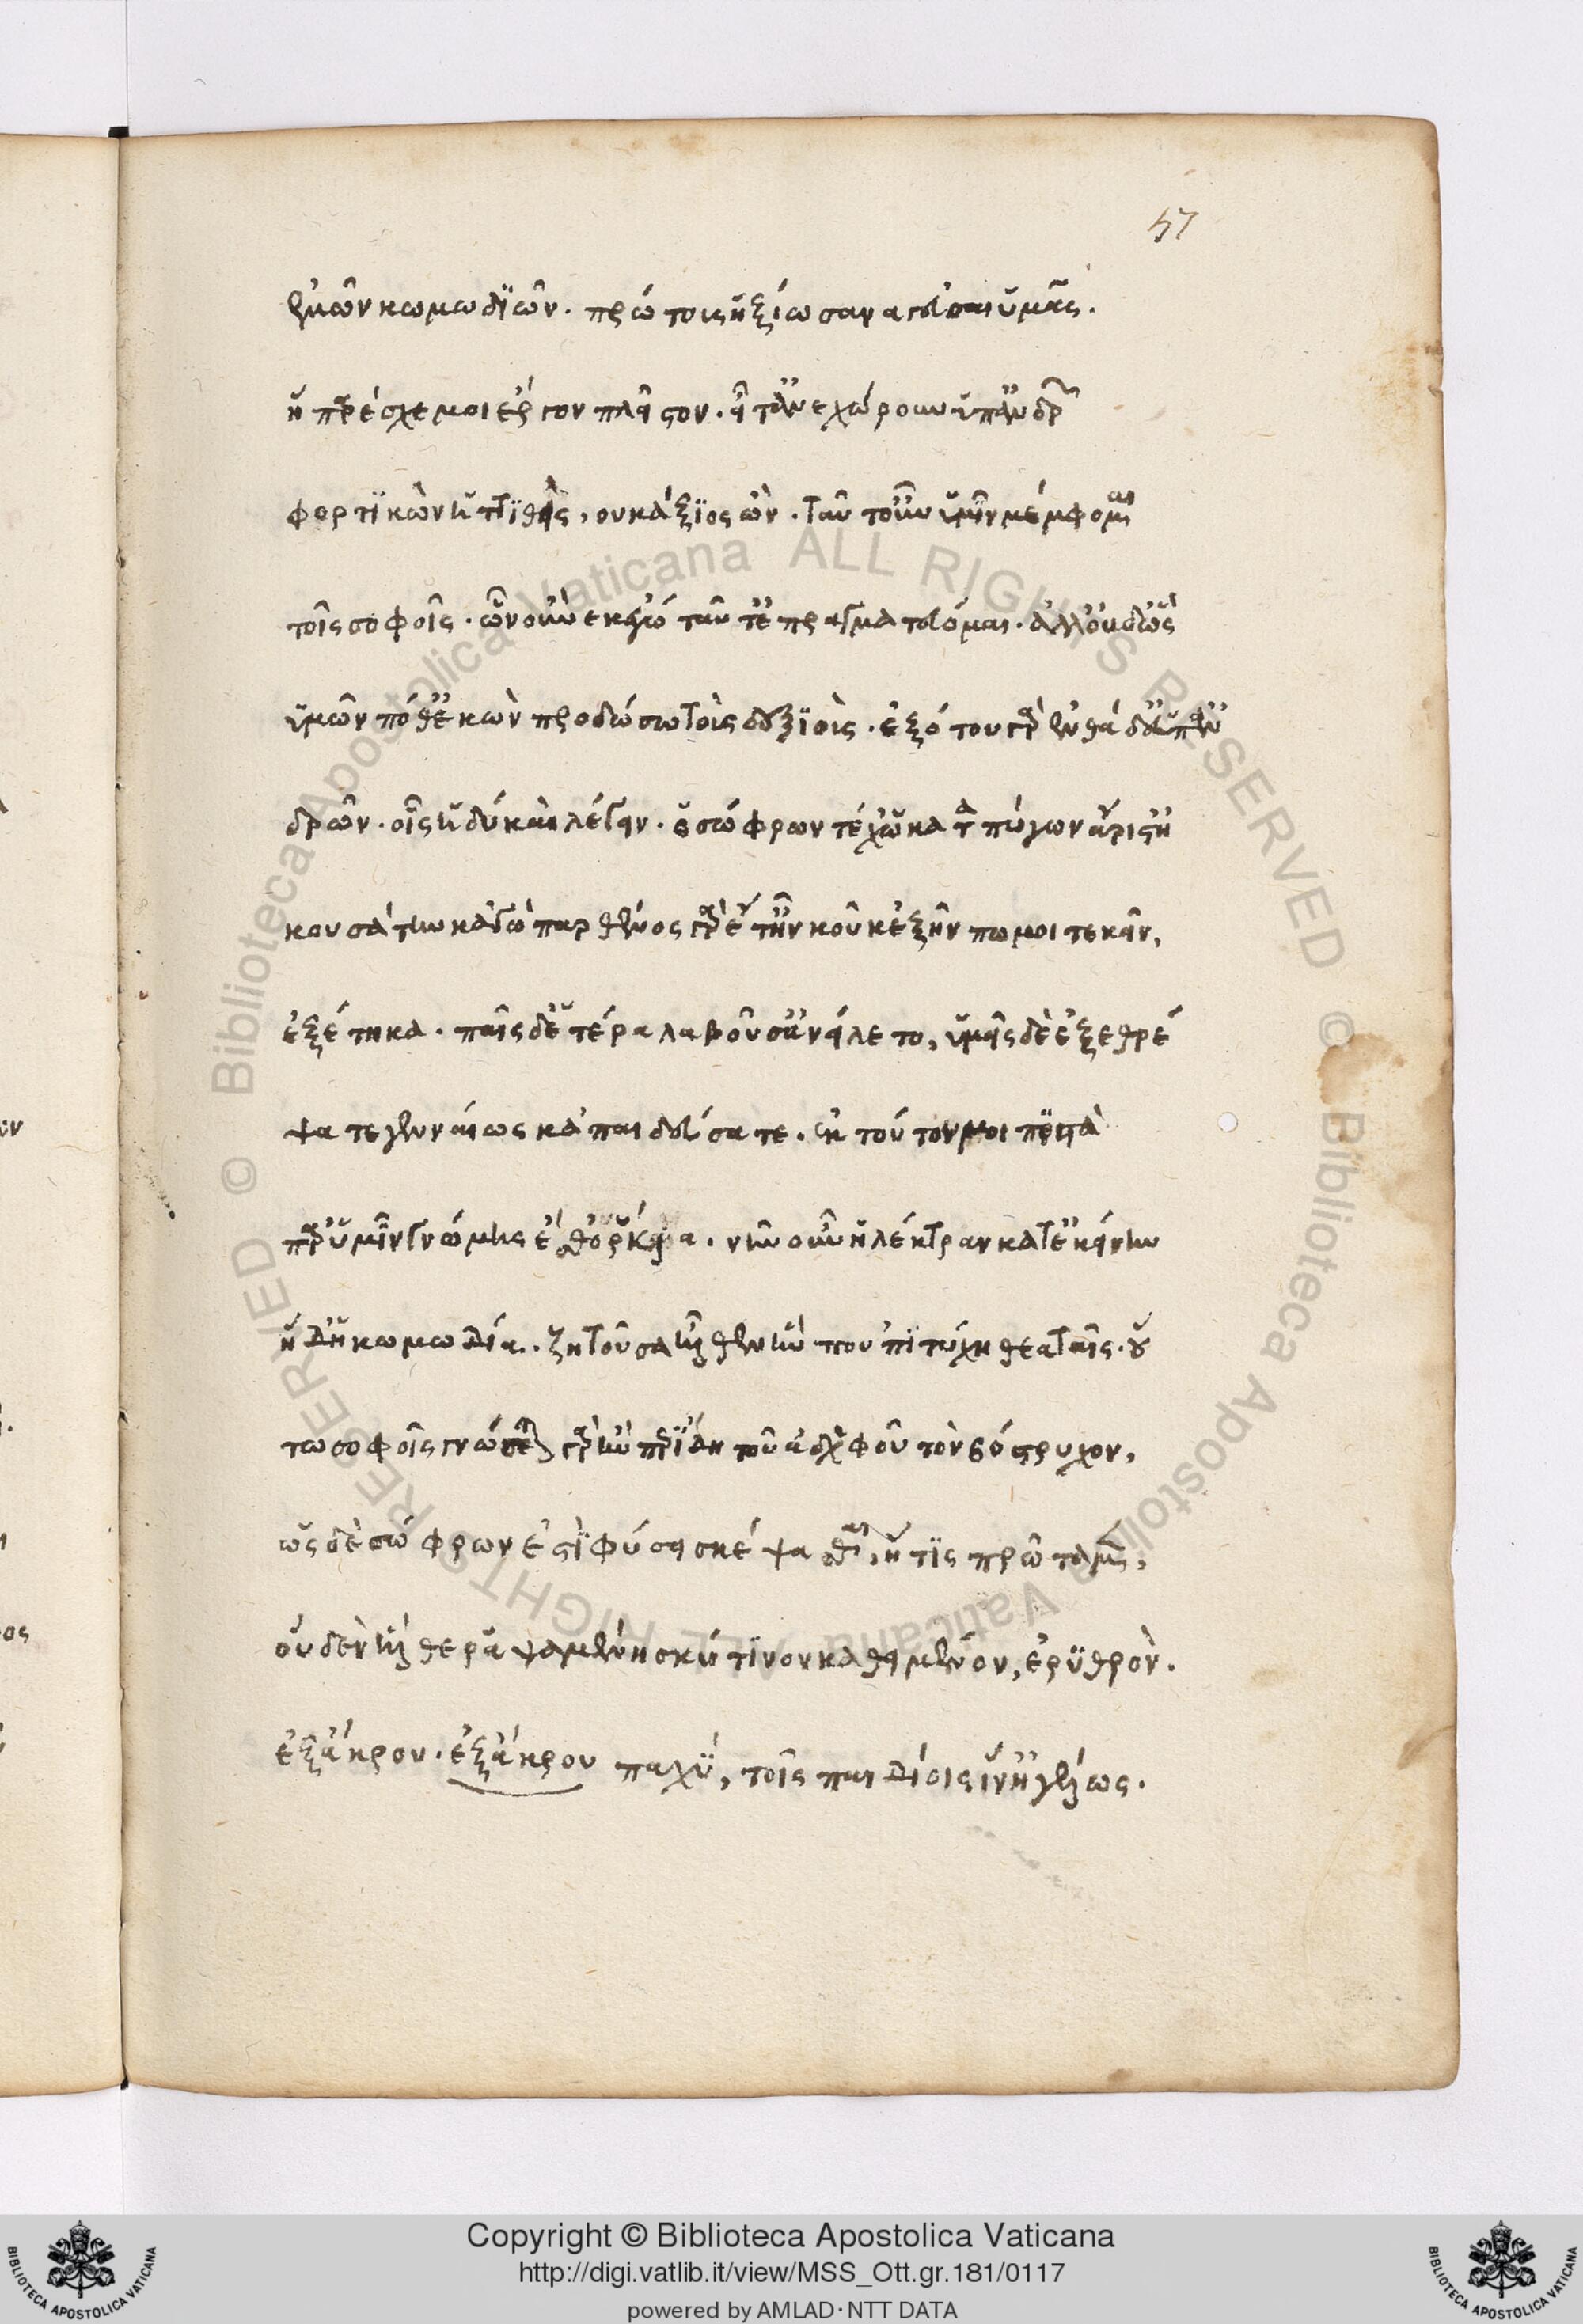 57
ἐμῶν κωμωδϊῶν. πρώτοις ἠξίωσαν ἀγεῦσαι ὑμᾶς.
ἣ παρέσχε μοι ἔργον πλεῖστον. εἶτ' ἀνεχώρουν ὑπ' ἀνδρῶν
φορτϊκῶν ἡττηθεὶς, οὐκ ἄξϊος ὤν. ταῦτ' οὖν ὑμῖν μέμφομαι
τοῖς σοφοῖς. ὧν οὕνεκ' ἐγὼ ταῦτ' ἐπραγματευόμην. ἀλλ' οὐδ' ὡς
ὑμῶν πόθ' ἑκὼν προδώσω τοὺς δεξϊούς. ἐξότου γὰρ ἐνθάδ' ὑπ' ἀν
δρῶν. οἷς ἡδὺ καὶ λέγειν. ὁ σώφρων τέ χὠ καταπύγων ἄριστ' ἠ
κουσάτην κἀγὼ παρθένος γὰρ ἔτ' ἦν κοὐκ ἐξῆν πω μοι τεκεῖν,
ἐξέθηκα. παῖς δ' ἑτέρα λαβοῦσ' ἀνείλετο, ὑμεῖς δὲ ἐξεθρέ
ψατε γενναίως κἀπαιδεύσατε. ἐκ τούτου μοι πϊστὰ
παρ' ὑμῖν γνώμης ἔσθ' ὅρκια. νῦν οὖν ἠλέκτραν κατ' ἐκείνην
ἥδ' ἡ κωμωδία. ζητοῦσα ἦλθεν ἤν που 'πϊτύχη θεαταῖς οὕ
τω σοφοῖς γνώσεται γὰρ ἤνπερ ἴδη τοῦ ἀδελφοῦ τὸν βόστρυχον,
ὡς δὲ σώφρων ἐστὶ φύσει σκέψασθαι, ἥτϊς πρῶτα μὲν,
οὐδὲν ἦλθε ῥαψαμένη σκύτϊνον καθειμένον, ἐρϋθρὸν.
ἐξ ἄκρον. ἐξ ἄκρου παχϋ, τοῖς παιδίοις ἵν' ἦ γέλως.
Copyright © Biblioteca Apostolica Vaticana
http://digi.vatlib.it/view/MSS_Ott.gr.181/0117
powered by AMLAD·NTT DATA